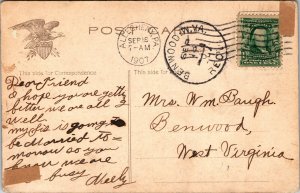 POST CARD
SEP 16
7-AM
1907
BENWOOD W.VA.
This side for Correspondence
This side for
Dear Friend
I hope you're getting
better we are all
well
my sis is going to
be married to
morrow so you
know we are
busy
Mrs. Wm Baugh.
Benwood,
West Virginia